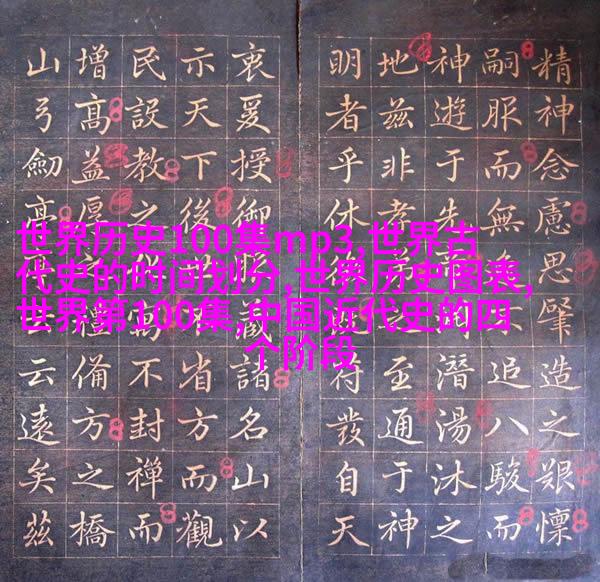 世界历史100集mp3,世界古
代史的时间划分,世界历史图表,
世界第100集,中国近代史的四
个阶段
精神念慮思肇造之艱懍
嗣服而無追八駿而
神遊于先潛湯沐之
地茲非孝至通于神
明者乎休符發自天
衷爰授御藏諸名山以
示天下後省方而觀
民設教之寓不封禪而
增高益厚禮備方之橋
山弓劍云遠矣茲